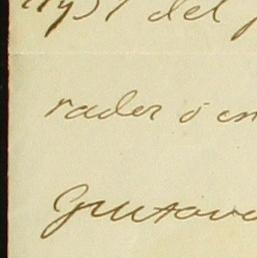 del
rador ó en
Gustavo